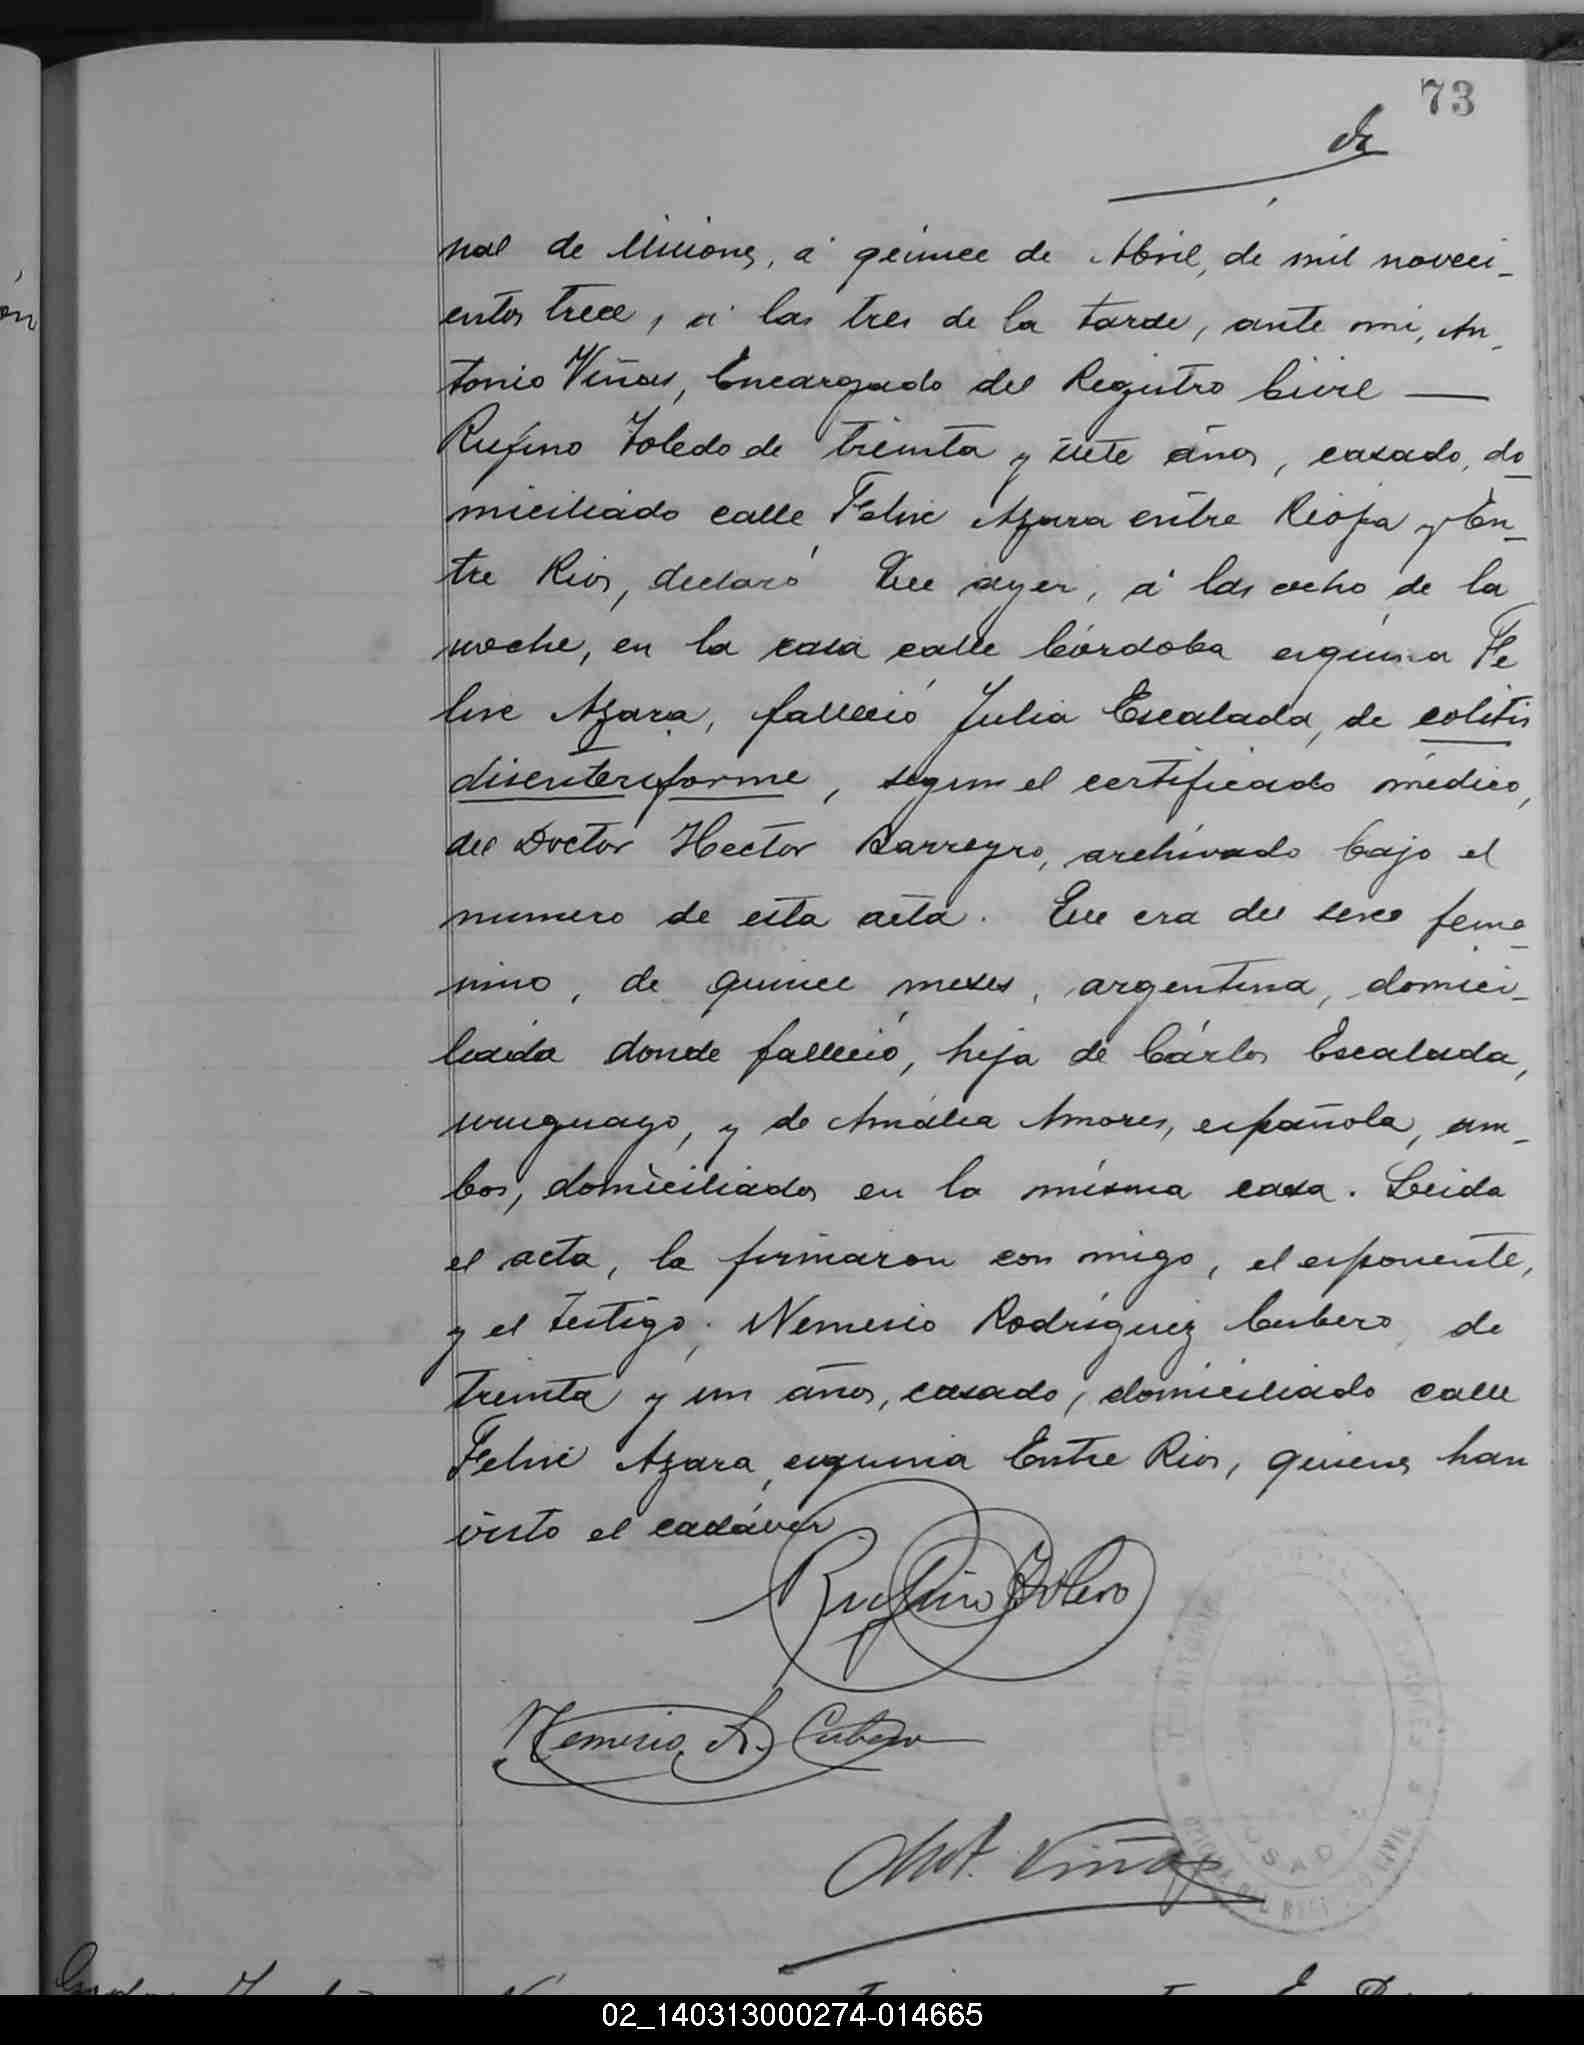 73
nal de Misiones, á quince de Abril, de mil noveci-
entos trece, á las tres de la tarde, ante mi, An-
tonio Viñas, Encargado del Registro Civil —
Rufino Toledo de treinta y siete años, casado, do-
miciliado calle Felix Azara entre Rioja y En-
tre Rios, declaró Que ayer, á las ocho de la
noche, en la casa calle Córdoba esquina Fe
lix Azara, falleció Julia Escalada, de colitis
disenteriforme, segun el certificado médico,
del Doctor Hector Barreyro, archivado bajo el
numero de esta acta. Que era del sexo feme-
nino, de quince meses, argentina, domici-
liada donde falleció, hija de Cárlos Escalada,
uruguayo, y de Amalia Amores, española, am-
bos, domiciliados en la misma casa. Leida
el acta, la firmaron con migo, el exponente,
y el testigo, Nemesio Rodriguez Cubero, de
treinta y un años, casado, domiciliado calle
Felix Azara, esquina Entre Rios, quienes han
visto el cadáver
Rufino Toledo
Nemesio R. Cubero
Ant. Viñas
02_140313000274-014665